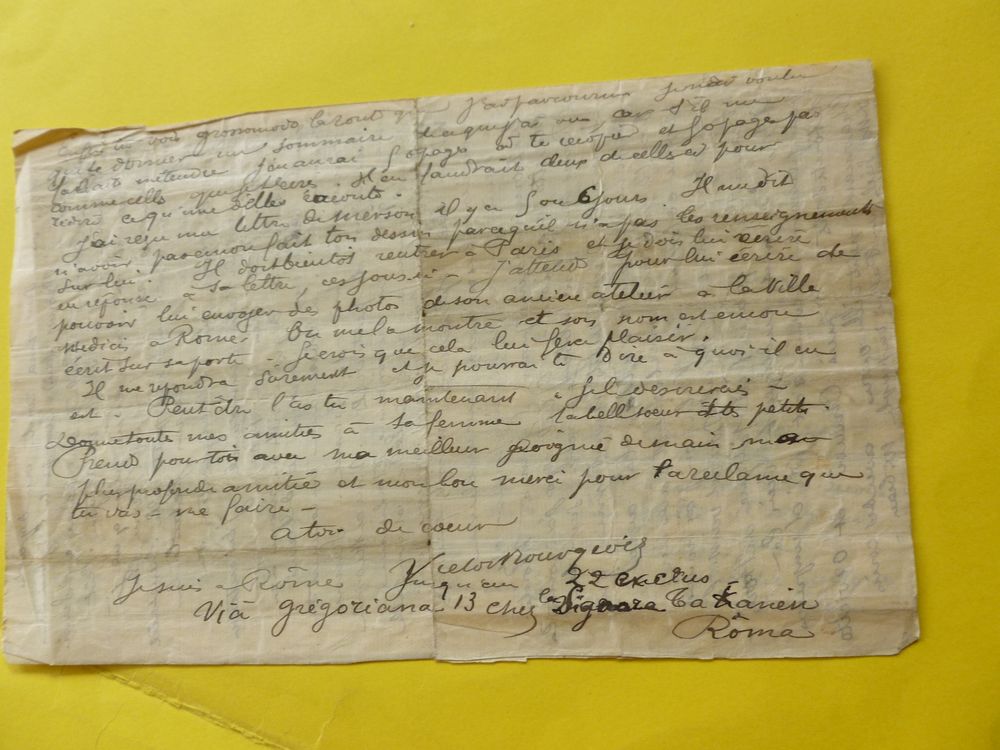 grossomodo la route que j'ai parcourue je n'ai voulu
que te donner un sommaire de ce que j'ai vu car s'il me
fallait m'étendre j'en aurai 50 pages à te recopier et 50 pages pas
comme celles que je t'écris. Il en faudrait deux de celles ci pour
J'ai reçu une lettre de merson il y a 5 ou 6 jours. Il me dit
n'avoir pas encore fait ton dessin parcequ'il n'a pas les renseignements
sur lui. Il doit bientot rentrer à Paris et je dois lui ecrire
en réponse à sa lettre, ces jours-ci - J'attend pour lui écrire de
pouvoir lui envoyer des photos de son ancien atelier à la Ville
Médicis à Rome. On me l'a montré et son nom est encore
écrit sur sa porte - Je crois que cela lui fera plaisir.
Il me repondra sûrement et je pourrai te Dire à quoi il en
est - Peut être l'as tu maintenant
Donne toutes mes amitiés à ta femme ta belle soeur et tes petits.
Prend pour toi avec ma meilleur poigné de main ma
plus profonde amitié et mon bon merci pour la reclame que
tu vas - me faire -
a toi de coeur
Victor Bourgeois
Je suis à Rôme jusqu'au 22 exclus
Via grégoriana 13 chez la Signora
Rôma